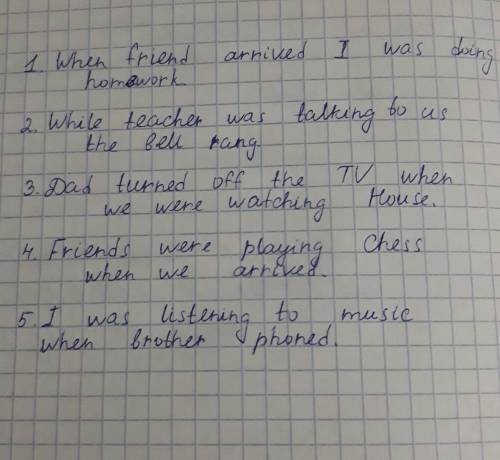 1. When friend arrived I was doing
homework
2. While teacher was talking to us
the bell rang
3. Dad turned off the TV when
we were watching House.
4. Friends were playing chess
when we arrived.
5. I was listening to music
when brother phoned.